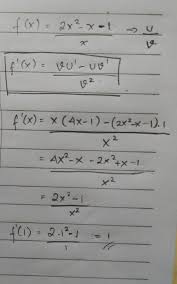 f(x) = 2x² - x - 1 / x → U / V²
f'(x) = VU' - UV' / V²
f'(x) = x(4x-1) - (2x²-x-1).1 / x²
= 4x² - x - 2x² + x - 1 / x²
= 2x² - 1 / x²
f'(1) = 2.1² - 1 / 1 = 1